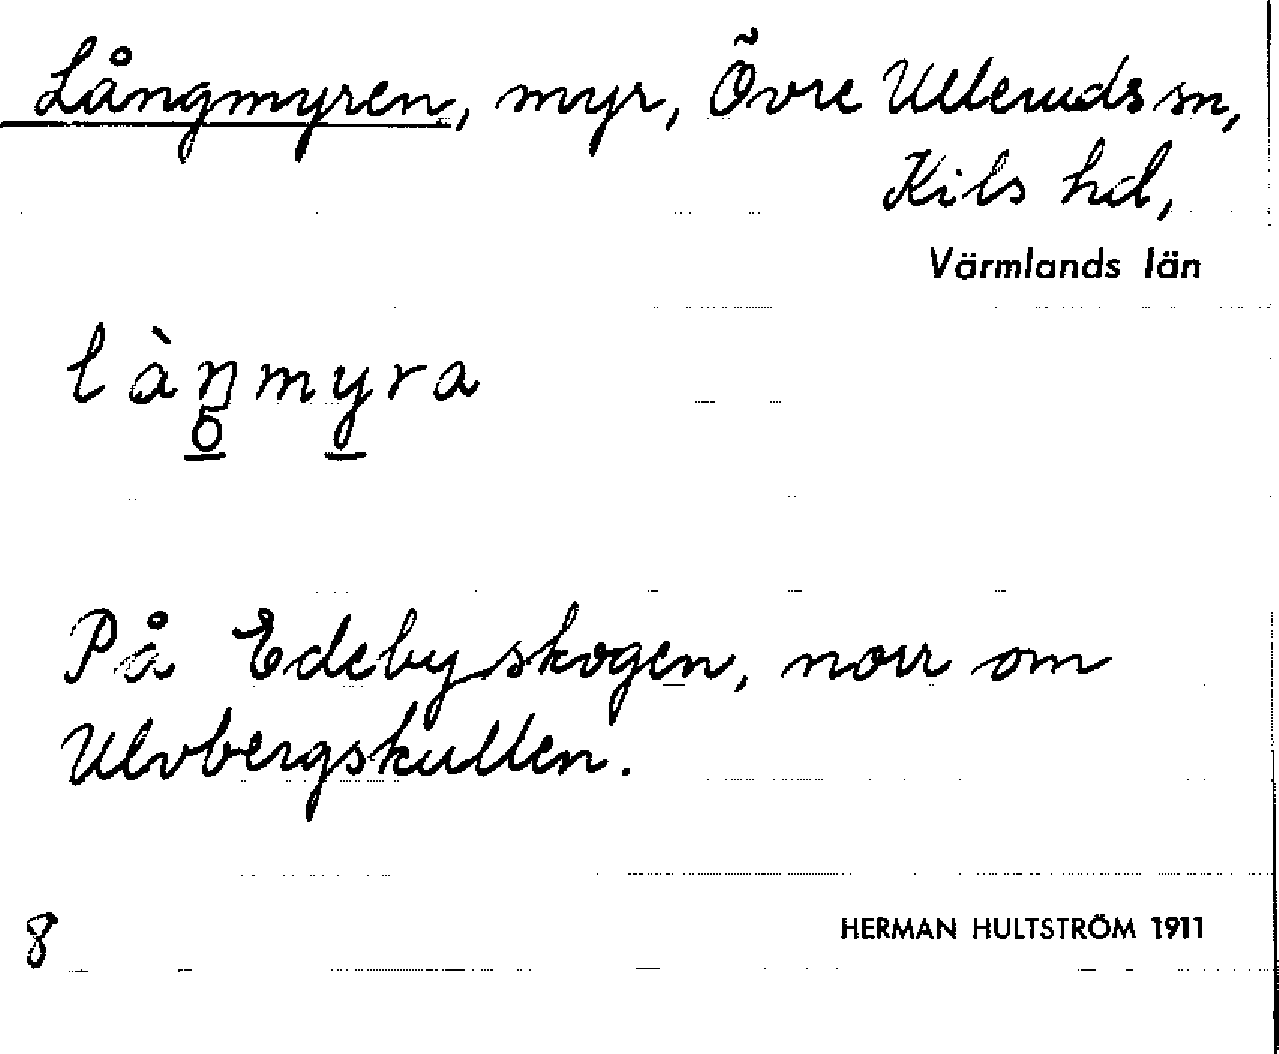 Långmyren, myr, Övre Ulleruds sn,
Kils hd,
Värmlands län
làŋmyra
På Edebyskogen, norr om
Ulvbergskullen.
8
HERMAN HULTSTRÖM 1911